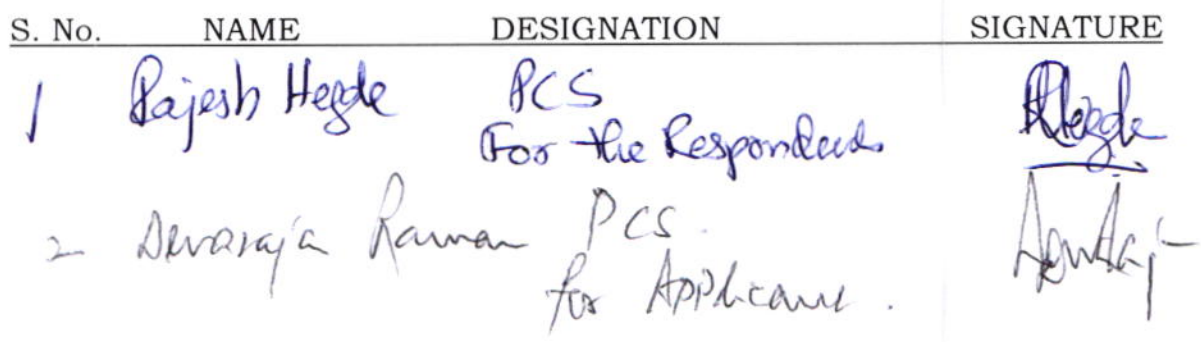 S. No. NAME DESIGNATION SIGNATURE
1 Rajesh Hegde PCS RHegde
For the Respondents
2 Devaraja Raman PCS.
for Applicant.